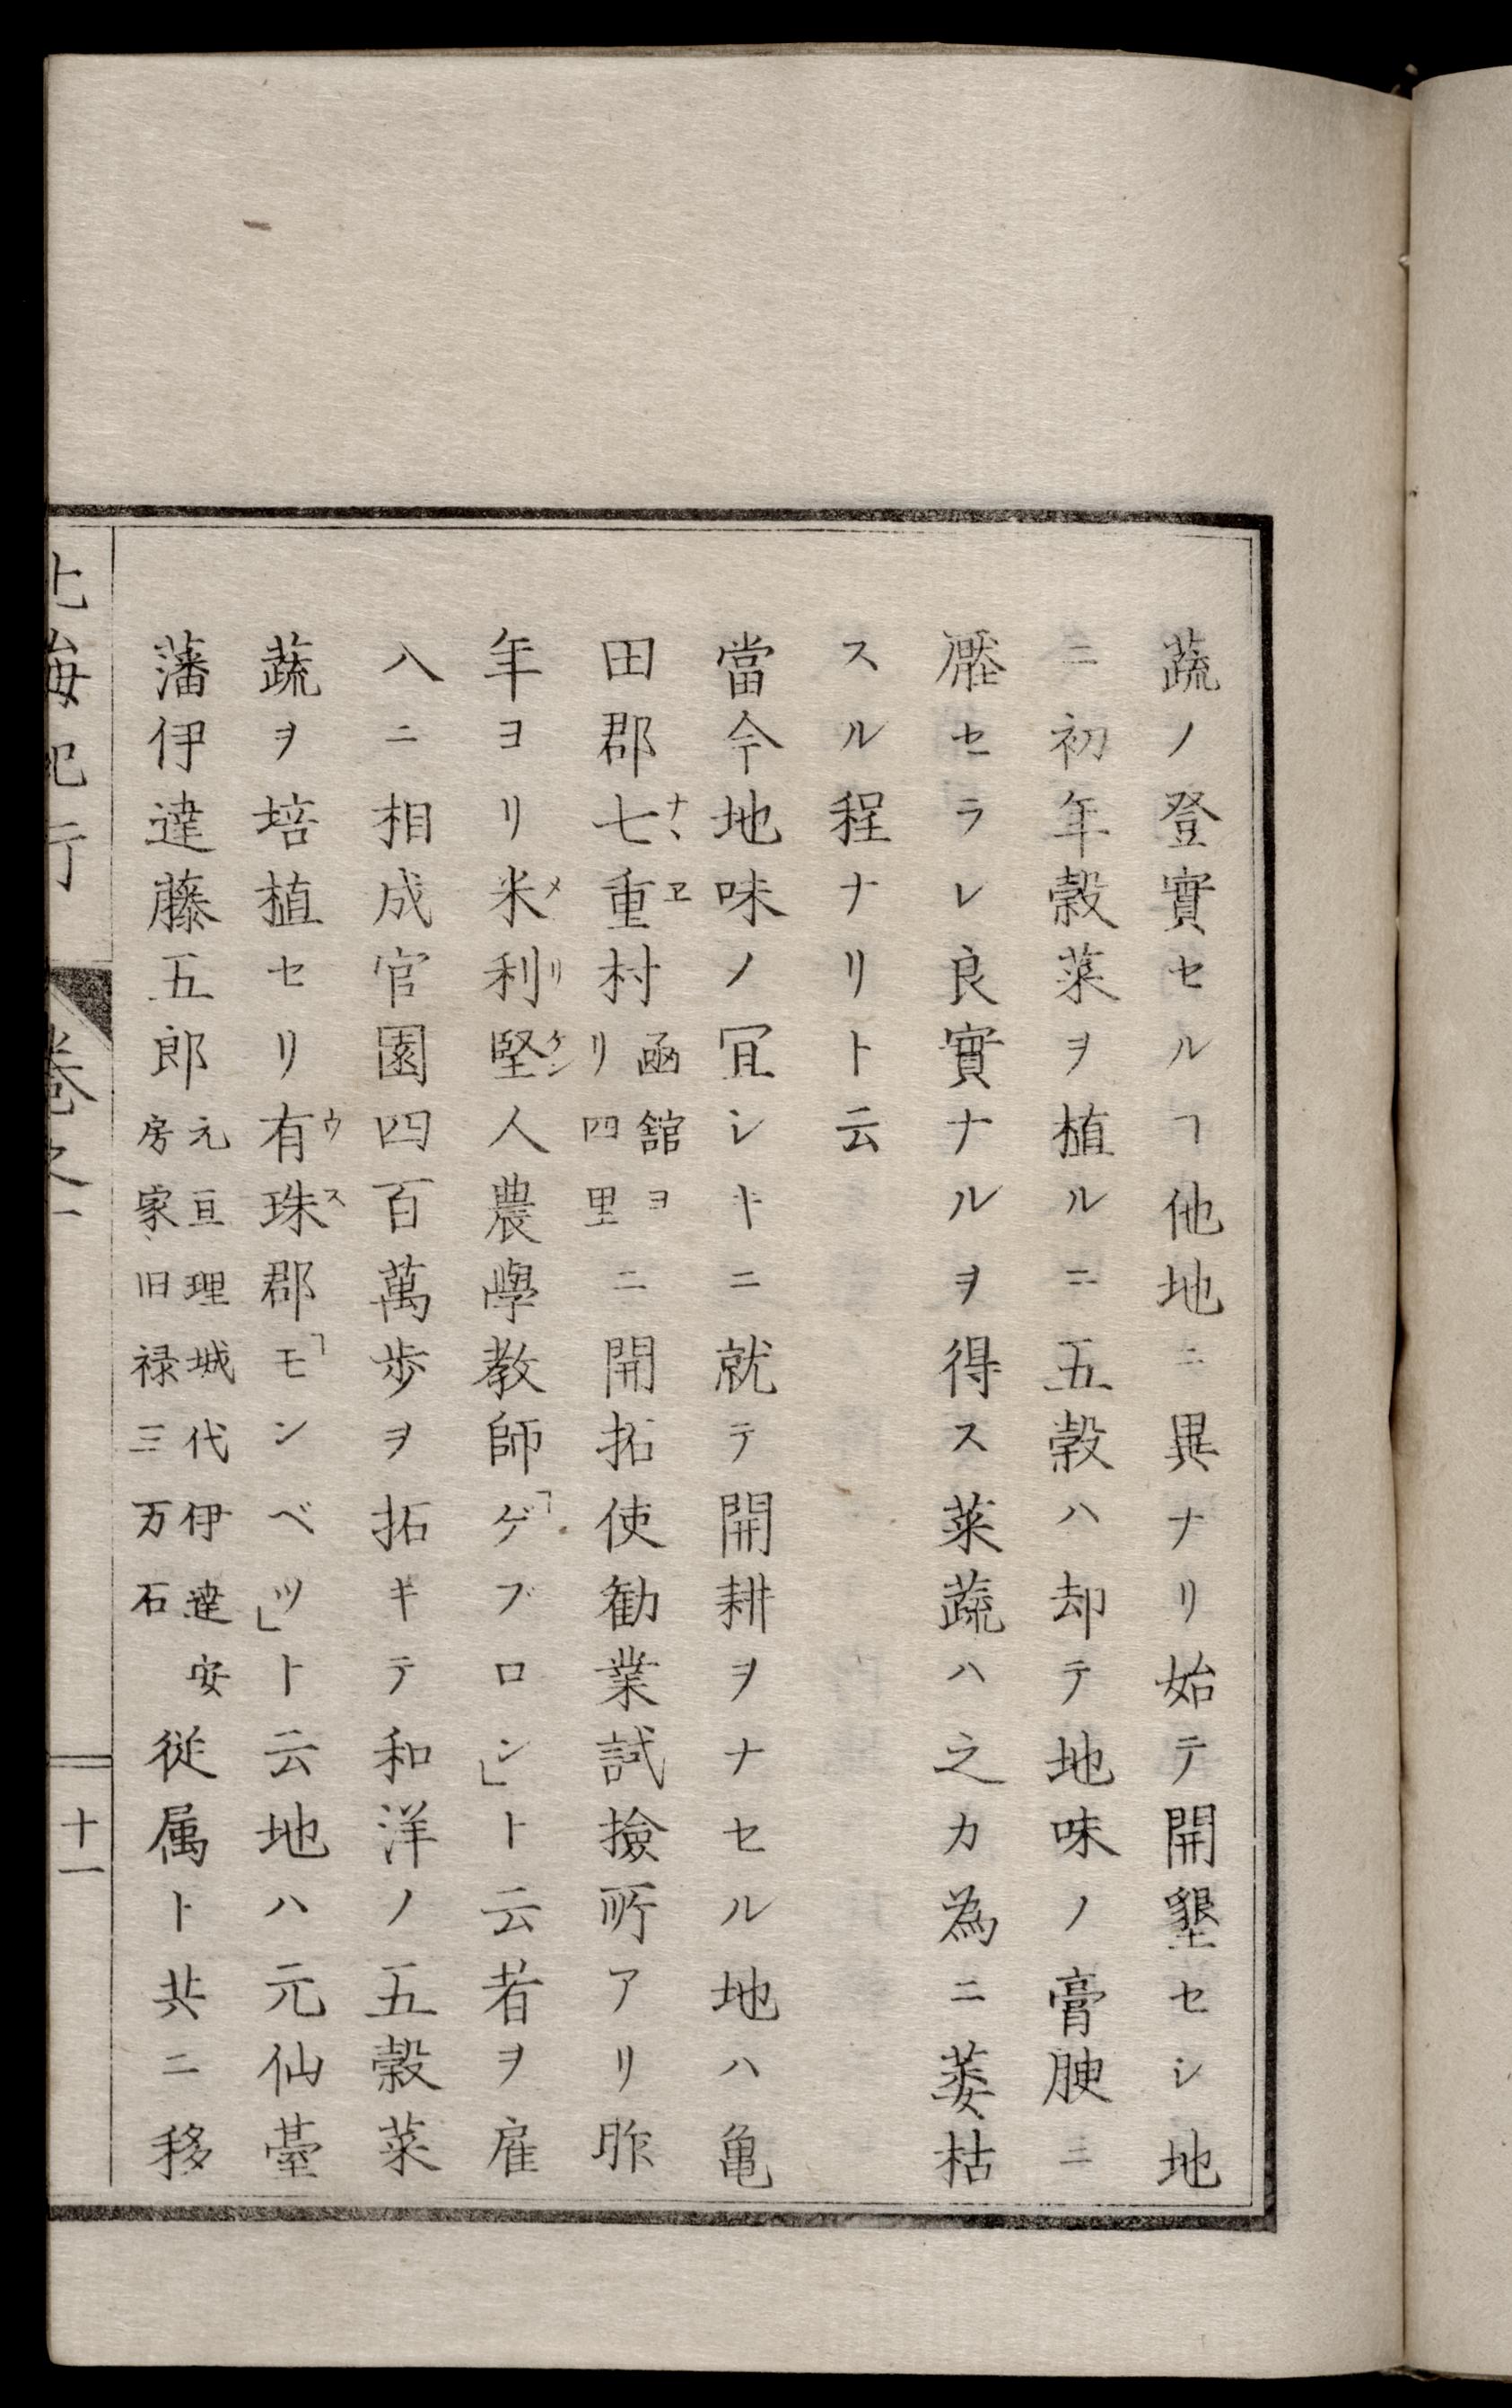 蔬ノ登實セルヿ他地ニ異ナリ始テ開墾セシ地
ニ初年穀菜ヲ植ルニ五穀ハ却テ地味ノ膏腴ニ
壓セラレ良實ナルヲ得ス菜蔬ハ之カ為ニ萎枯
スル程ナリト云
當今地味ノ冝シキニ就テ開耕ヲナセル地ハ亀
田郡七重村函舘ヨリ四里ニ開拓使勧業試撿所アリ昨
ナヽヱ
年ヨリ米利堅人農學教師「ゲブロン」ト云者ヲ雇
メリケン
八ニ相成官園四百萬歩ヲ拓キテ和洋ノ五穀菜
蔬ヲ培植セリ有珠郡「モンベツ」ト云地ハ元仙臺
ウス
藩伊達藤五郎元亘理城代伊達安房家旧禄三万石従属ト共ニ移
北海紀行 巻之一 十一